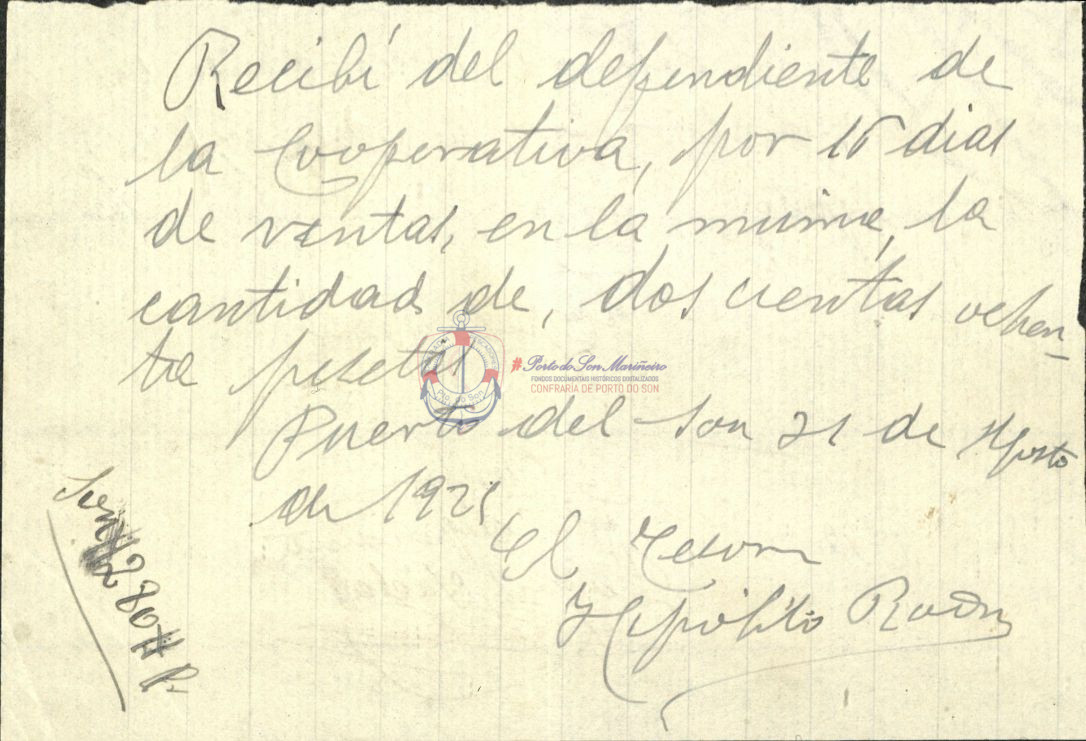 Recibí del dependiente de
la Cooperativa, por 16 dias
de ventas, en la misma, la
cantidad de, dos cientas ochen-
ta pesetas
Puerto del Son 21 de Agosto
de 1921
El Tesorero
Hipólito
Son #280# P.
Pto. do Son
#PortodoSonMariñeiro
FONDOS DOCUMENTAIS HISTÓRICOS DIXITALIZADOS
CONFRARÍA DE PORTO DO SON